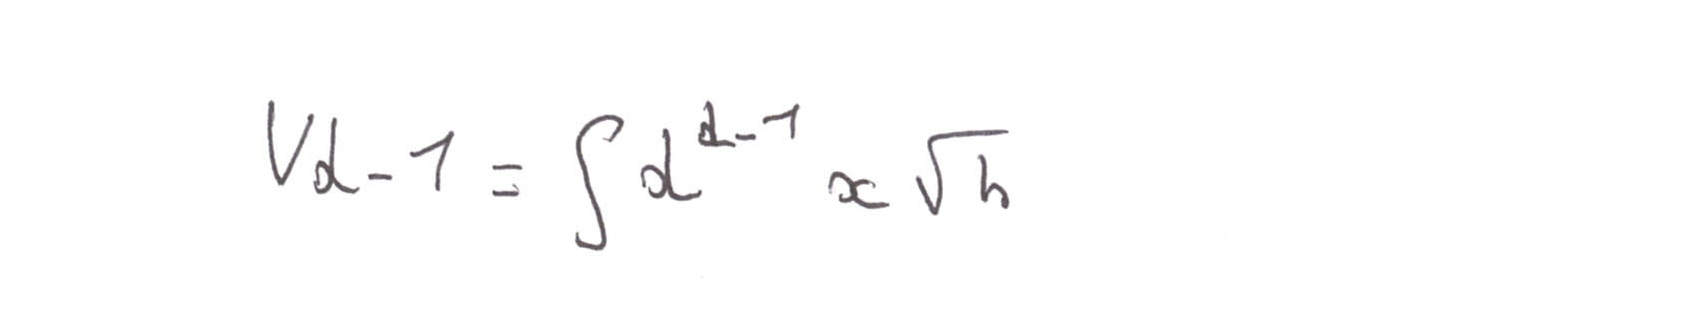 V_{d-1} = \int d^{d-1} x \sqrt{h}